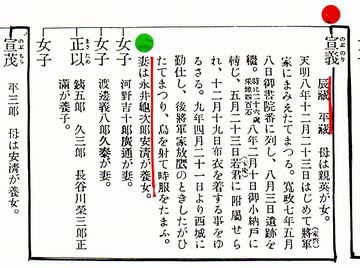 宣義
のぶのり
辰蔵 平蔵 母は親英が女。
天明八年十二月二十三日はじめて將軍
(家斉)
家にまみえたてまつる。寬政七年五月
八日御書院番に列し、八月三日遺跡を
繼。時に二十六歳 采地四百石 八年二月十日御小納戸に
轉じ、五月二十三日若君に附屬せら
れ、十二月十九日布衣を着する事をゆ
るさる。九年四月二十一日より西城に
勤仕し、後將軍家放鷹のときしたがひ
たてまつり、鳥を射て時服をたまふ。
妻は永井龜次郎安清が養女。
女子 河野吉十郎廣通が妻。
女子 渡邊義八郎久泰が妻。
正以
まさため
銕五郎 久三郎 長谷川榮三郎正
滿が養子。
女子
宣茂
のぶもち
平三郎 母は安清が養女。